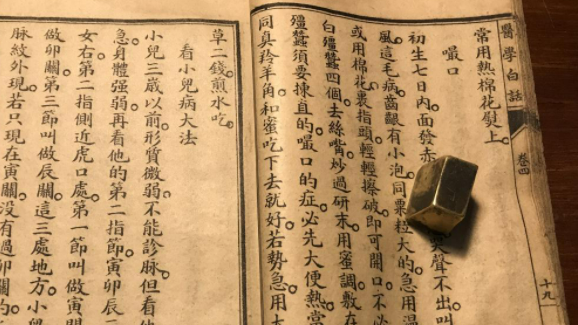 醫學白話
卷四
十九
常用熱棉花熨上。
嘬口
初生七日內面發赤 聲不出叫
風。這毛病齒齦有小泡。同粟粒大的。急用溫
或用棉花裹指頭輕輕擦破。即可開口。不必
白殭蠶四個。去絲嘴。炒過研末。用蜜調敷在
殭蠶須要揀直的。嘬口的症。必先大便熱
同真羚羊角。和蜜吃下去。就好。若勢急。用大
草二錢。煎水吃。
看小兒病大法
小兒三歲以前。形質微弱。不能診脉。但看他
急。身體强弱。再看他的第二指節。寅卯辰
女右第二指側近虎口處。第一節叫做寅
做卯關。第三節叫做辰關。這三處地方。小兒
脉紋外現。若只現在寅關。沒有過卯關的